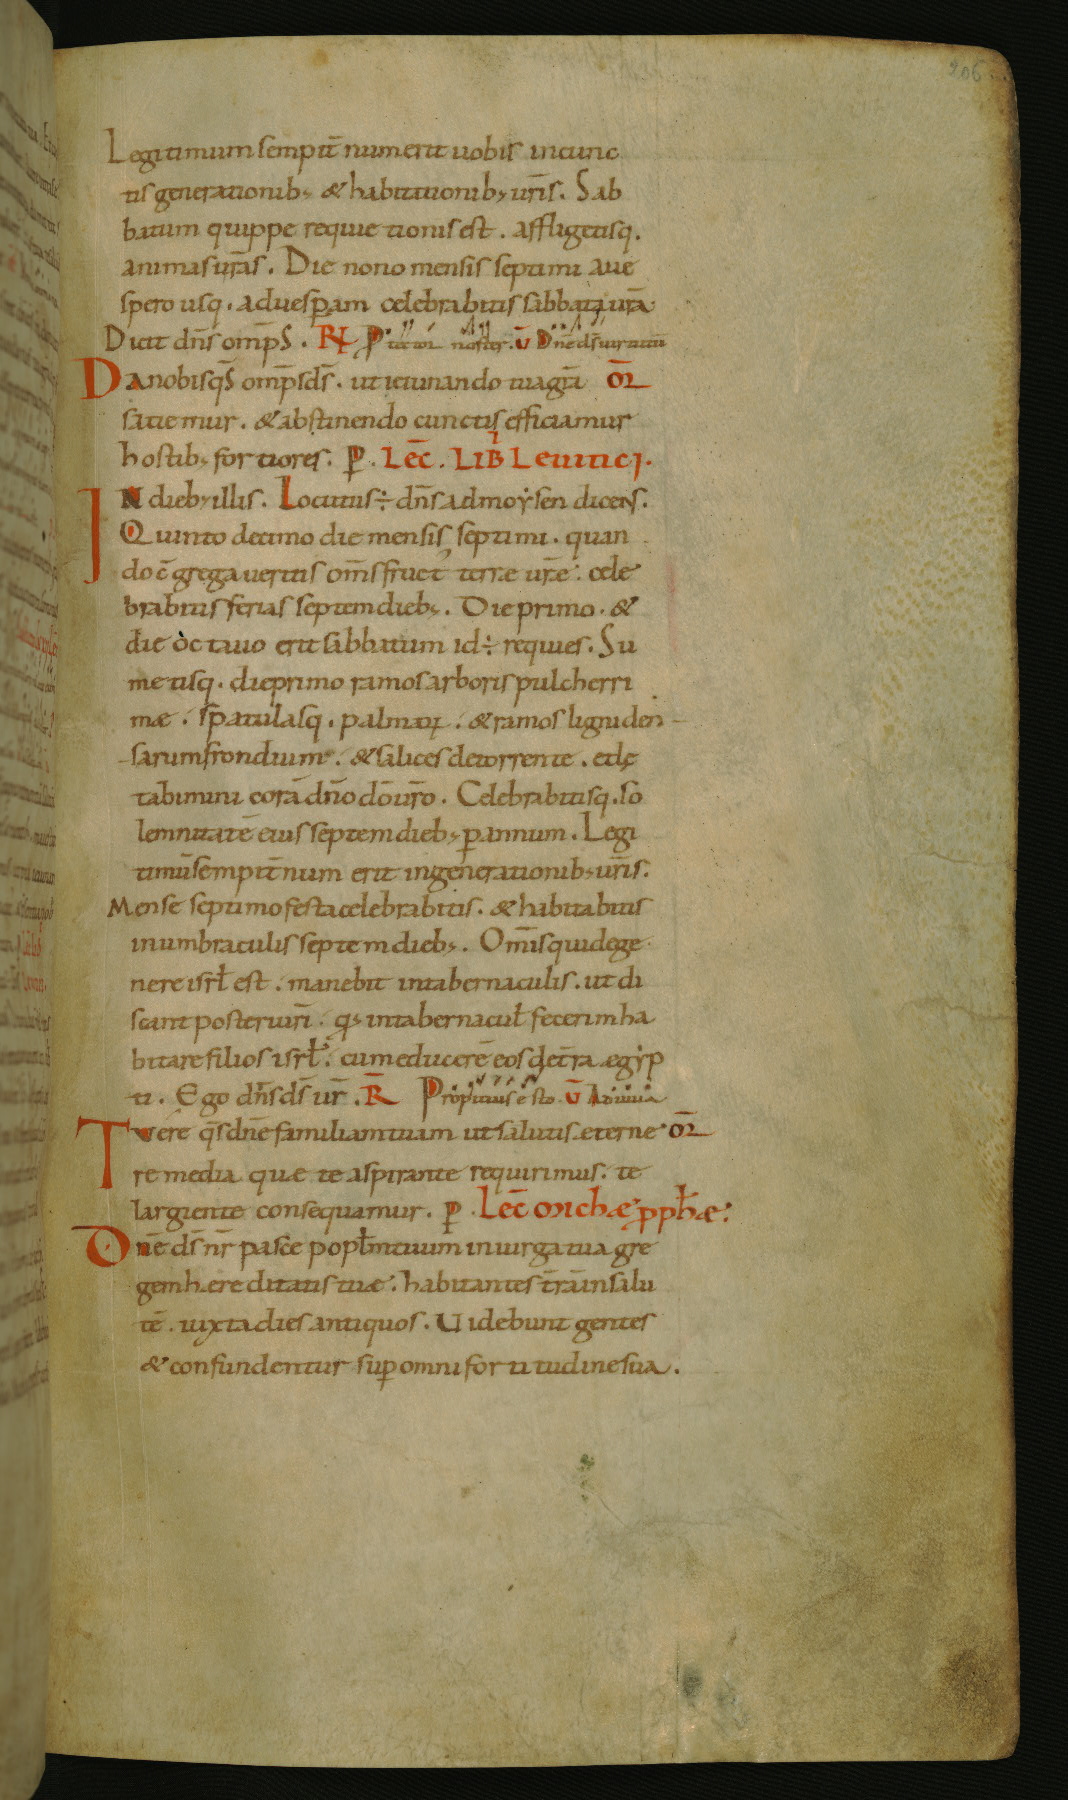 206
Legitimum sempit̄num erit uobis incunc
tis generationib; & habitationib; ur̄is. Sab
batum quippe requietionis est. affligetisq.
animas ur̄as. Die nono mensis septimi aue
spero usq. aduesp̄am celebrabitis sabbata ur̄a
Dicit dn̄s omp̄s. R̄ P̄tector noster. ū Dn̄e ds̄ uirtutū
Da nobis qs̄ omp̄s ds̄. ut ieiunando tua gr̄a or̄
satiemur. & abstinendo cunctis efficiamur
hostib; fortiores. p̄. Lec̄. Lib̄ Leuitici.
In dieb; illis. Locutus ÷ dn̄s ad moẏsen dicens.
Quinto decimo die mensis septimi. quan
do c̄gregaueritis om̄s fruct' terrae ur̄e. cele
brabitis ferias septem dieb;. Die primo. &
die octauo erit sabbatum id ÷ requies. Su
metisq. die primo ramos arboris pulcherri
mae. spatulasq. palmarꝝ. & ramos ligni den
sarum frondium. & salices de torrente. et lę
tabimini corā dn̄o dō ur̄o. Celebrabitisq. so
lemnitatē eius septem dieb; p̄ annum. Legi
timū sempit̄num erit in generationib; ur̄is.
Mense septimo festa celebrabitis. & habitabitis
in umbraculis septem dieb;. Om̄is qui de ge
nere isrl̄ est. manebit in tabernaculis. ut di
scant posteri ur̄i. q; in tabernacul̄ fecerim ha
bitare filios isrl̄. cum educerē eos de t̄ra aegẏp
ti. Ego dn̄s ds̄ ur̄. R̄ Propitius esto. ū Adiuua
Tuere qs̄ dn̄e familiam tuam ut salutis eterne or̄
remedia quae te aspirante requirimus. te
largiente consequamur. p̄. Lec̄ michae p̄ph̄ae.
Dn̄e ds̄ nr̄ pasce popl̄m tuum in uirga tua gre
gem haereditatis tuae. habitantes t̄rā in salu
tē. iuxta dies antiquos. Uidebunt gentes
& confundentur sup̄ omni fortitudine sua.